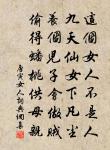 這個女人不是人
九天仙女下凡塵
養個兒子會做賊
偷得蟠桃供母親
唐寅女人詞典網集